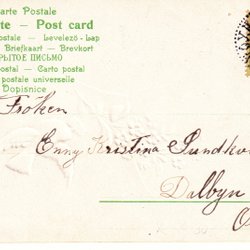 Carte Postale
te – Post card
ostale — Levelező-Lap
Briefkaart — Brevkort
РЫТОЕ ПИСЬМО
postal — Carto postal
postale universelle
Dopisnice
Fröken
Enny Kristina Sundkv
Dalbyn